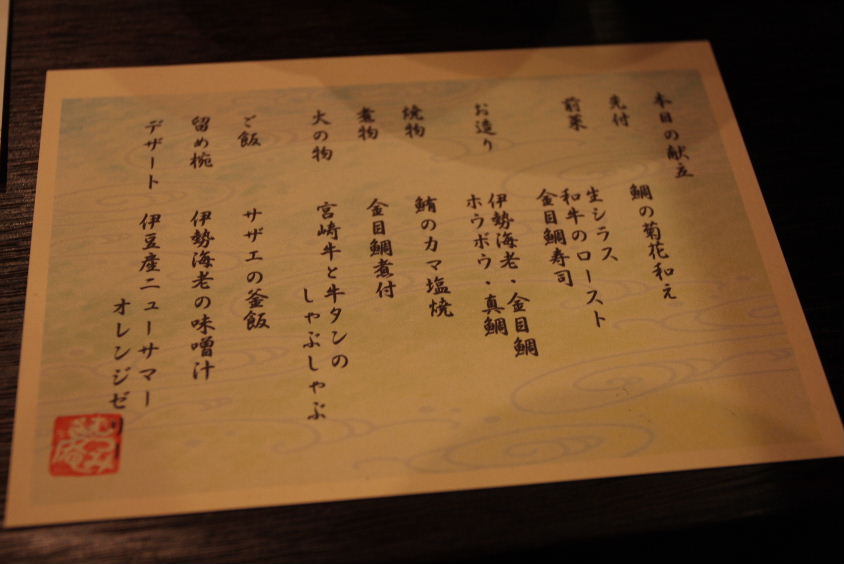 本日の献立
先付
鯛の菊花和え
前菜
生シラス
和牛のロースト
金目鯛寿司
お造り
伊勢海老・金目鯛
ホウボウ・真鯛
焼物
鮪のカマ塩焼
煮物
金目鯛煮付
火の物
宮崎牛と牛タンの
しゃぶしゃぶ
ご飯
サザエの釜飯
留め椀
伊勢海老の味噌汁
デザート
伊豆産ニューサマー
オレンジゼ